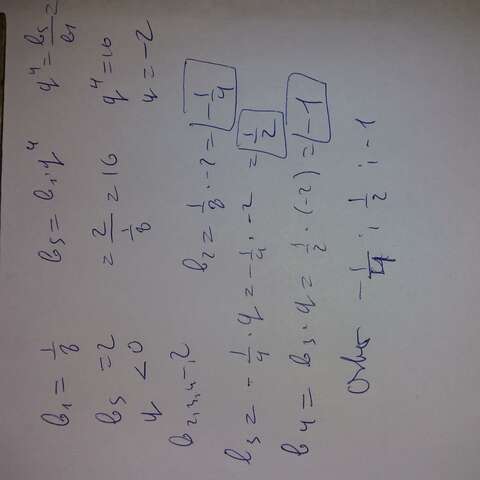 b₁ = 1/8   b₅ = b₁·q⁴   q⁴ = b₅/b₁ =
b₅ = 2   = 2/(1/8) = 16   q⁴ = 16
q < 0   q = -2
b₂; b₃; b₄ - ?   b₂ = 1/8 · -2 = -1/4
b₃ = -1/4 · q = -1/4 · -2 = 1/2
b₄ = b₃ · q = 1/2 · (-2) = -1
Ответ -1/4 ; 1/2 ; -1